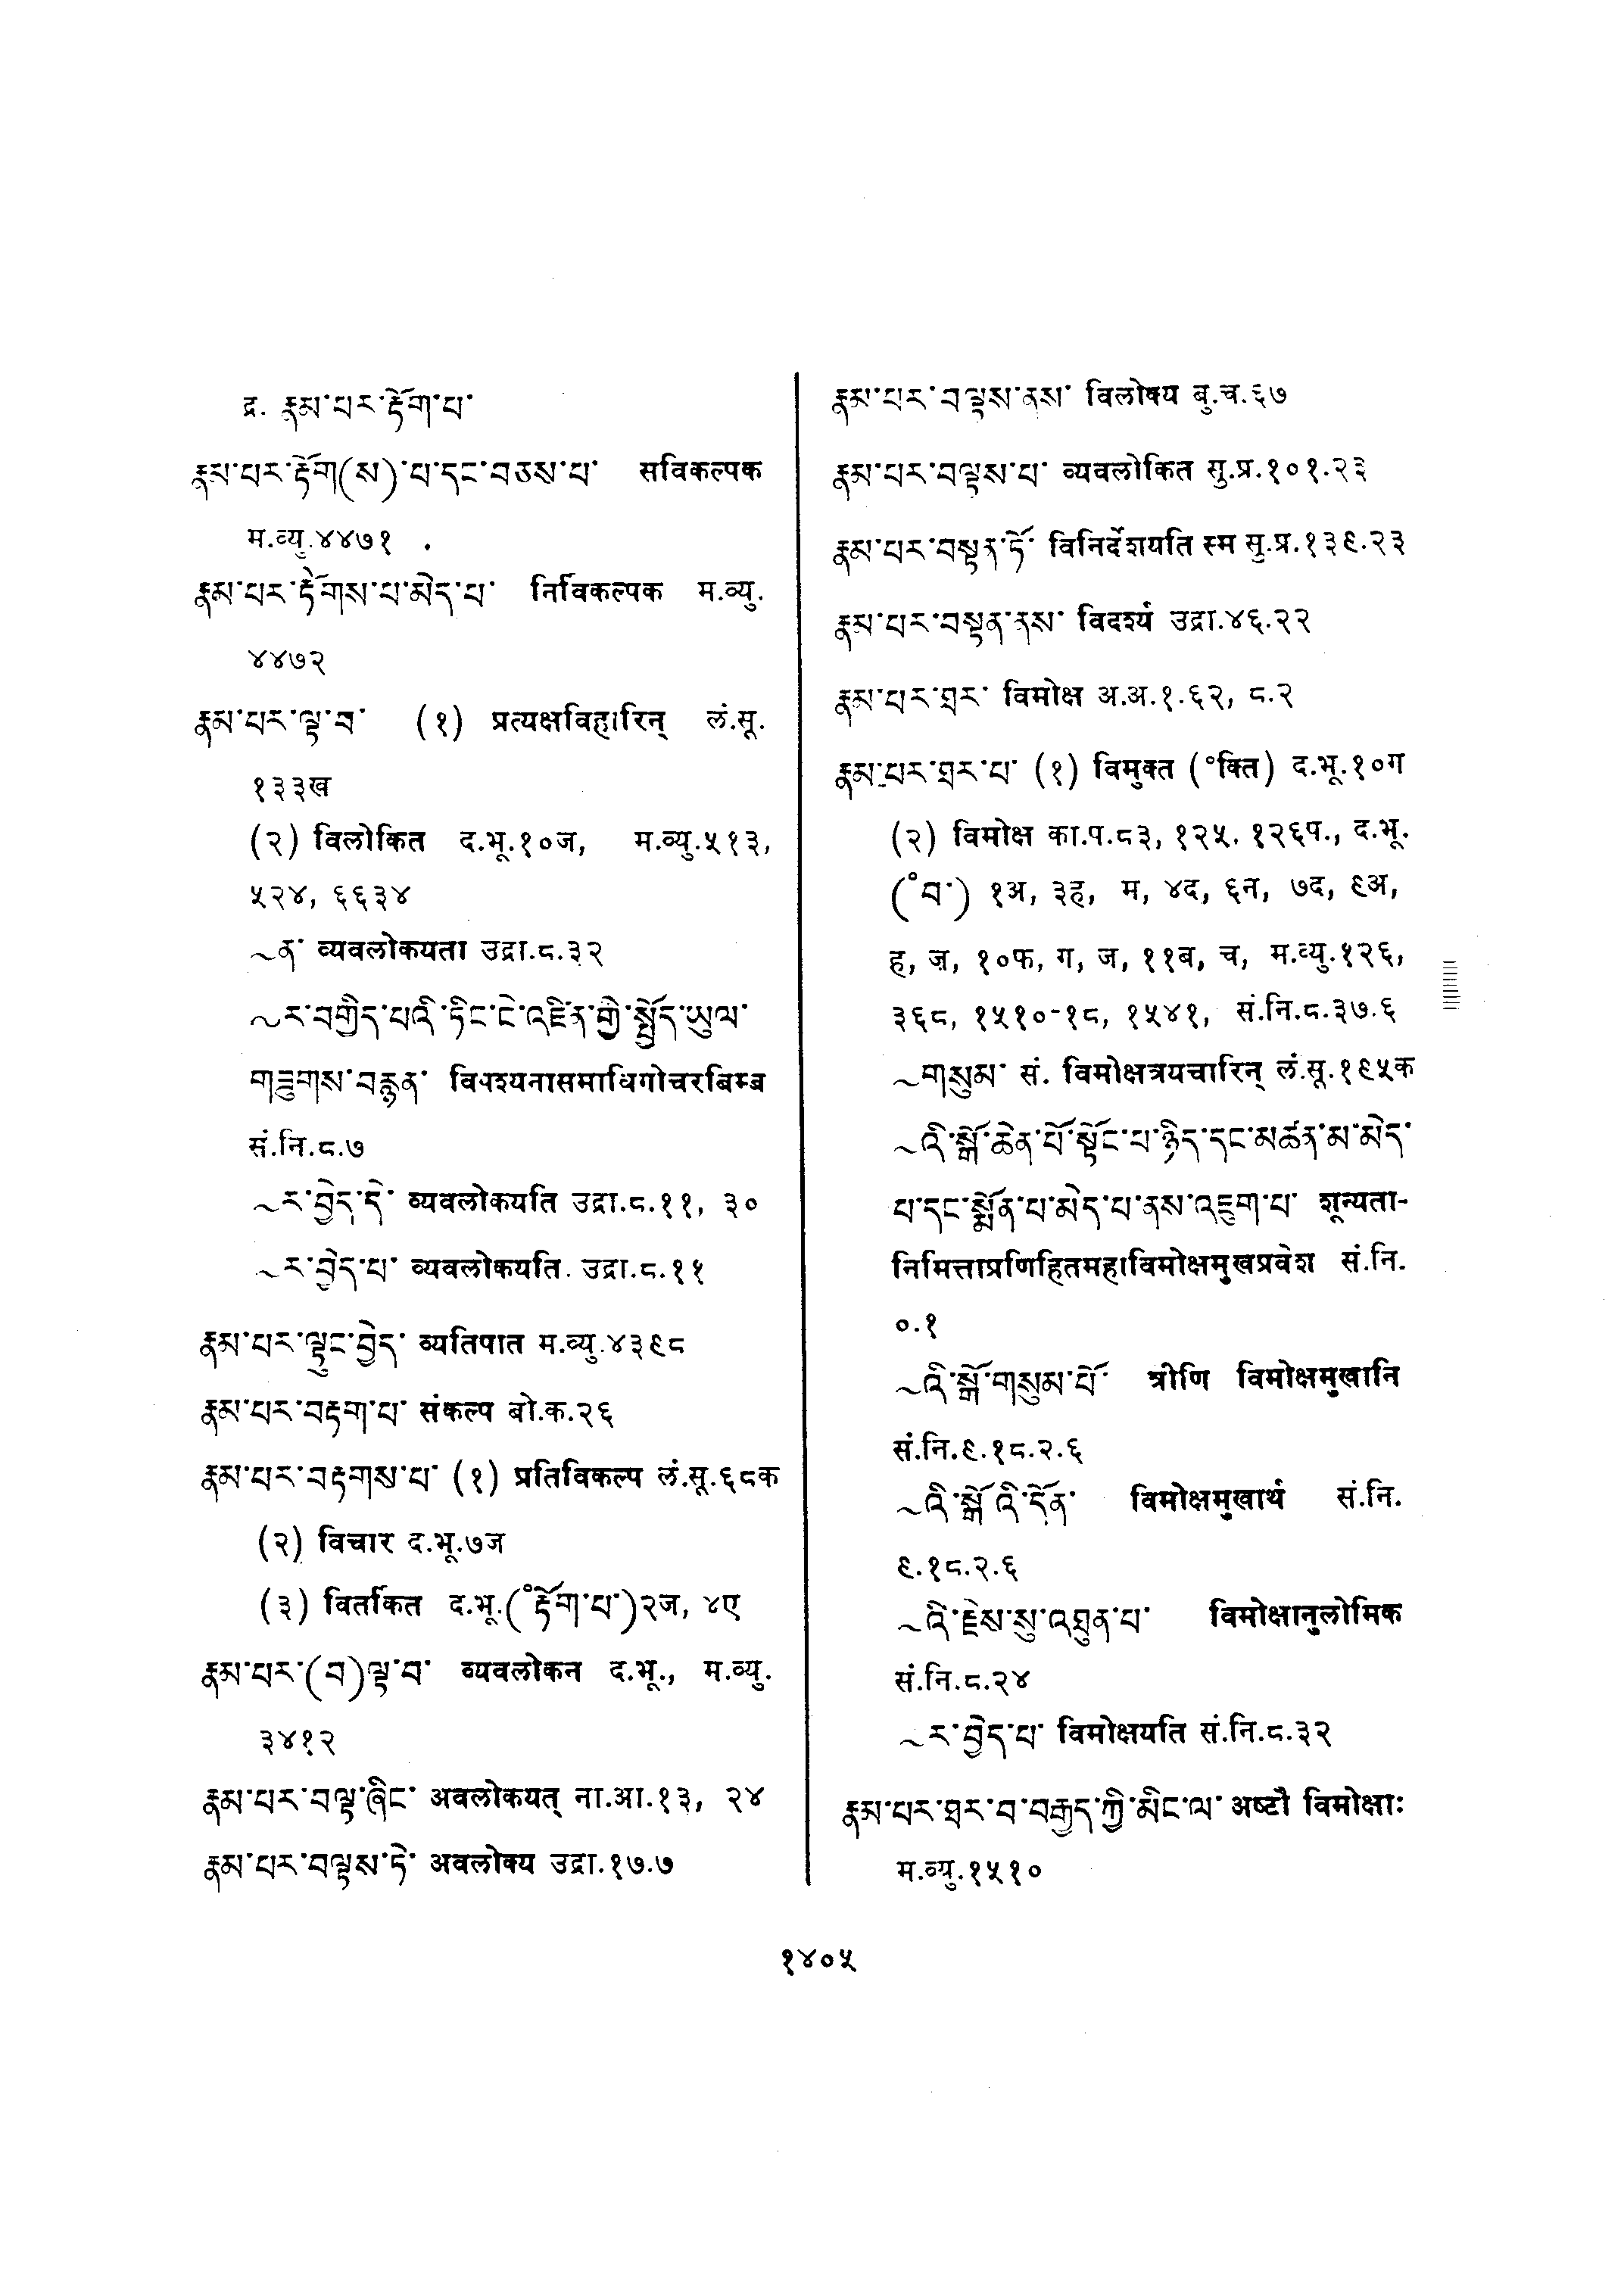 द्र. རྣམ་པར་རྟོག་པ་
རྣམ་པར་རྟོག(ས)་པ་དང་བཅས་པ་ सविकल्पक
म.व्यु.४४७१
རྣམ་པར་རྟོགས་པ་མེད་པ་ निर्विकल्पक म.व्यु.
४४७२
རྣམ་པར་ལྟ་བ་ (१) प्रत्यक्षविहारिन् लं.सू.
१३३ख
(२) विलोकित द.भू.१०ज, म.व्यु.५१३,
५२४, ६६३४
~ན་ व्यवलोकयता उद्रा.८.३२
~ར་བགྱིད་པའི་ཏིང་ངེ་འཛིན་གྱི་སྤྱོད་ཡུལ་
གཟུགས་བརྙན་ विपश्यनासमाधिगोचरबिम्ब
सं.नि.८.७
~ར་བྱེད་དེ་ व्यवलोकयति उद्रा.८.११, ३०
~ར་བྱེད་པ་ व्यवलोकयति उद्रा.८.११
རྣམ་པར་ལྟུང་བྱེད་ व्यतिपात म.व्यु.४३९८
རྣམ་པར་བརྟག་པ་ संकल्प बो.क.२६
རྣམ་པར་བརྟགས་པ་ (१) प्रतिविकल्प लं.सू.६८क
(२) विचार द.भू.७ज
(३) वितर्कित द.भू.(°རྟོག་པ་)२ज, ४ए
རྣམ་པར་(བ)ལྟ་བ་ व्यवलोकन द.भू., म.व्यु.
३४१२
རྣམ་པར་བལྟ་ཞིང་ अवलोकयत् ना.आ.१३, २४
རྣམ་པར་བལྟས་ཏེ་ अवलोक्य उद्रा.१७.७
རྣམ་པར་བལྟས་ནས་ विलोक्य बु.च.६७
རྣམ་པར་བལྟས་པ་ व्यवलोकित सु.प्र.१०१.२३
རྣམ་པར་བསྟན་ཏོ་ विनिर्देशयति स्म सु.प्र.१३९.२३
རྣམ་པར་བསྟན་ནས་ विदर्श्य उद्रा.४६.२२
རྣམ་པར་ཐར་ विमोक्ष अ.अ.१.६२, ८.२
རྣམ་པར་ཐར་པ་ (१) विमुक्त (°क्ति) द.भू.१०ग
(२) विमोक्ष का.प.८३, १२५. १२६प., द.भू.
(°བ་) १अ, ३ह, म, ४द, ६न, ७द, ९अ,
ह, ज़, १०फ, ग, ज, ११ब, च, म.व्यु.१२६,
३६८, १५१०-१८, १५४१, सं.नि.८.३७.६
~གསུམ་ सं. विमोक्षत्रयचारिन् लं.सू.१९५क
~འི་སྒོ་ཆེན་པོ་སྟོང་པ་ཉིད་དང་མཚན་མ་མེད་
པ་དང་སྨོན་པ་མེད་པ་ནས་འཇུག་པ་ शून्यता-
निमित्ताप्रणिहितमहाविमोक्षमुखप्रवेश सं.नि.
०.१
~འི་སྒོ་གསུམ་པོ་ त्रीणि विमोक्षमुखानि
सं.नि.९.१८.२.६
~འི་སྒོ་འི་དོན་ विमोक्षमुखार्थ सं.नि.
९.१८.२.६
~འི་རྗེས་སུ་འཐུན་པ་ विमोक्षानुलोमिक
सं.नि.८.२४
~ར་བྱེད་པ་ विमोक्षयति सं.नि.८.३२
རྣམ་པར་ཐར་བ་བརྒྱད་ཀྱི་མིང་ལ་ अष्टौ विमोक्षाः
म.व्यु.१५१०
१४०५